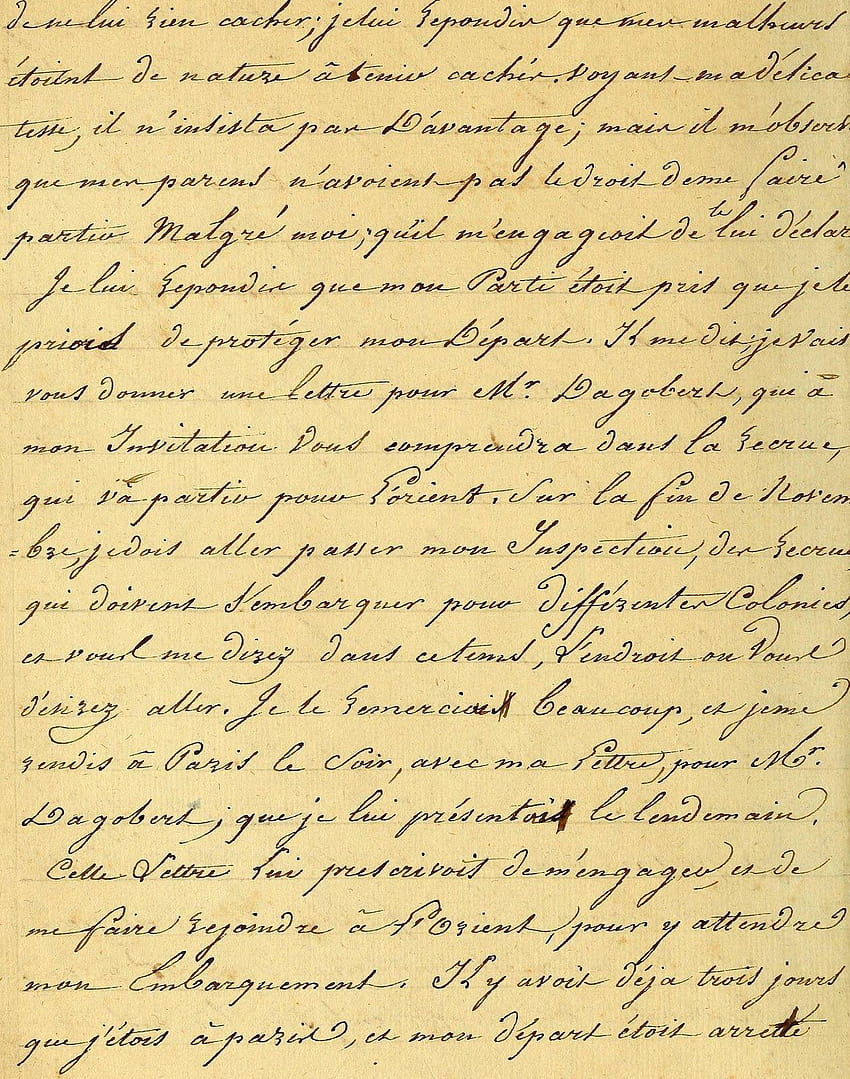 de ne lui rien cacher; je lui repondis que mes malheurs
étoient de nature à tenir cachés. voyant ma délica
tesse, il n'insista pas D'avantage; mais il m'observ
que mes parens n'avoient pas le droit de me faire
partir Malgré moi; qu'il m'engageoit de te lui déclar
Je lui repondis que mon Parti étoit pris que je le
priois de protéger mon Départ. Il me dit; je vais
vous donner une lettre pour Mr. Dagobert, qui à
mon Invitation Vous comprendra dans la recrue,
qui và partir pour L'orient. Sur la fin de Novem
=bre, je dois aller passer mon Inspection, des recrue
qui doivent S'embarquer pour différentes Colonies,
et vous me direz dans ce tems, L'endroit ou Vous
désirez aller. Je le remerciais beaucoup, et je me
rendis à Paris le Soir, avec ma Lettre, pour Mr.
Dagobert; que je lui présentois le lendemain.
Cette Lettre Lui prescrivoit de m'engager, et de
me faire rejoindre à L'Orient, pour y attendre
mon Embarquement. Il y avoit déja trois jours
que j'étois à paris, et mon départ étoit arretté